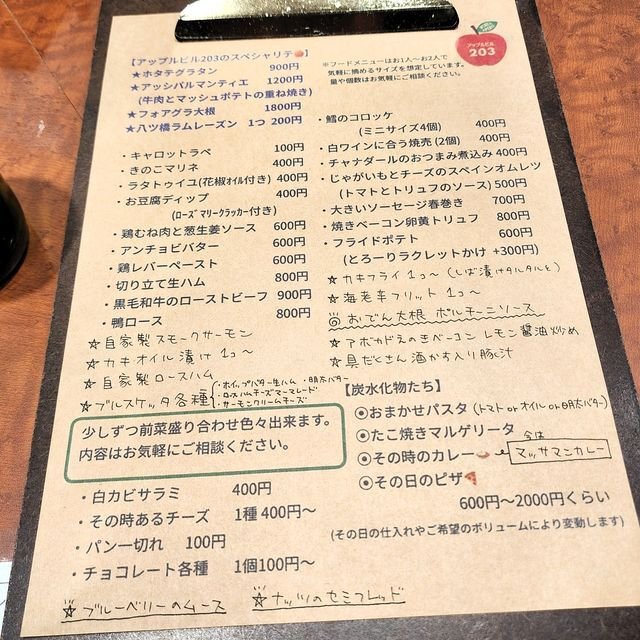 【アップルビル203のスペシャリテ🍎】
★ホタテグラタン 900円
★アッシパルマンティエ 1200円
(牛肉とマッシュポテトの重ね焼き)
★フォアグラ大根 1800円
★八ツ橋ラムレーズン 1つ 200円
・キャロットラペ 100円
・きのこマリネ 400円
・ラタトゥイユ(花椒ｵｲﾙ付き) 400円
・お豆腐ディップ 400円
(ﾛｰｽﾞﾏﾘｰｸﾗｯｶｰ付き)
・鶏むね肉と葱生姜ソース 600円
・アンチョビバター 600円
・鶏レバーペースト 600円
・切り立て生ハム 800円
・黒毛和牛のローストビーフ 900円
・鴨ロース 800円
☆自家製スモークサーモン
☆カキオイル漬け 1コ〜
☆自家製ロースハム
☆ブルスケッタ各種
・ホイップバター生ハム ・明太バター
・ロースハムチーズマーマレード
・サーモンクリームチーズ
少しずつ前菜盛り合わせ色々出来ます。
内容はお気軽にご相談ください。
・白カビサラミ 400円
・その時あるチーズ 1種 400円〜
・パン一切れ 100円
・チョコレート各種 1個100円〜
☆ブルーベリーのムース ☆ナッツのセミフレッド
アップルビル
203
※フードメニューはお1人〜お2人で
気軽に摘めるサイズを想定しています。
量や個数はお気軽にご相談ください。
・鱈のコロッケ
(ミニサイズ4個) 400円
・白ワインに合う焼売(2個) 400円
・チャナダールのおつまみ煮込み 400円
・じゃがいもとチーズのスペインオムレツ
(トマトとトリュフのソース) 500円
・大きいソーセージ春巻き 700円
・焼きベーコン卵黄トリュフ 800円
・フライドポテト 600円
(とろーりラクレットかけ +300円)
☆カキフライ 1コ〜 (しば漬けタルタルと)
☆海老辛フリット 1コ〜
◎おでん大根 ポルチーニソース
☆アボカドえのきベーコン レモン醤油炒め
☆具だくさん酒かす入り豚汁
【炭水化物たち】
◉おまかせパスタ (トマト or オイル or 明太バター)
◉たこ焼きマルゲリータ
◉その時のカレー🍛 今は マッサマンカレー
◉その日のピザ🍕
600円〜2000円くらい
(その日の仕入れやご希望のボリュームにより変動します)